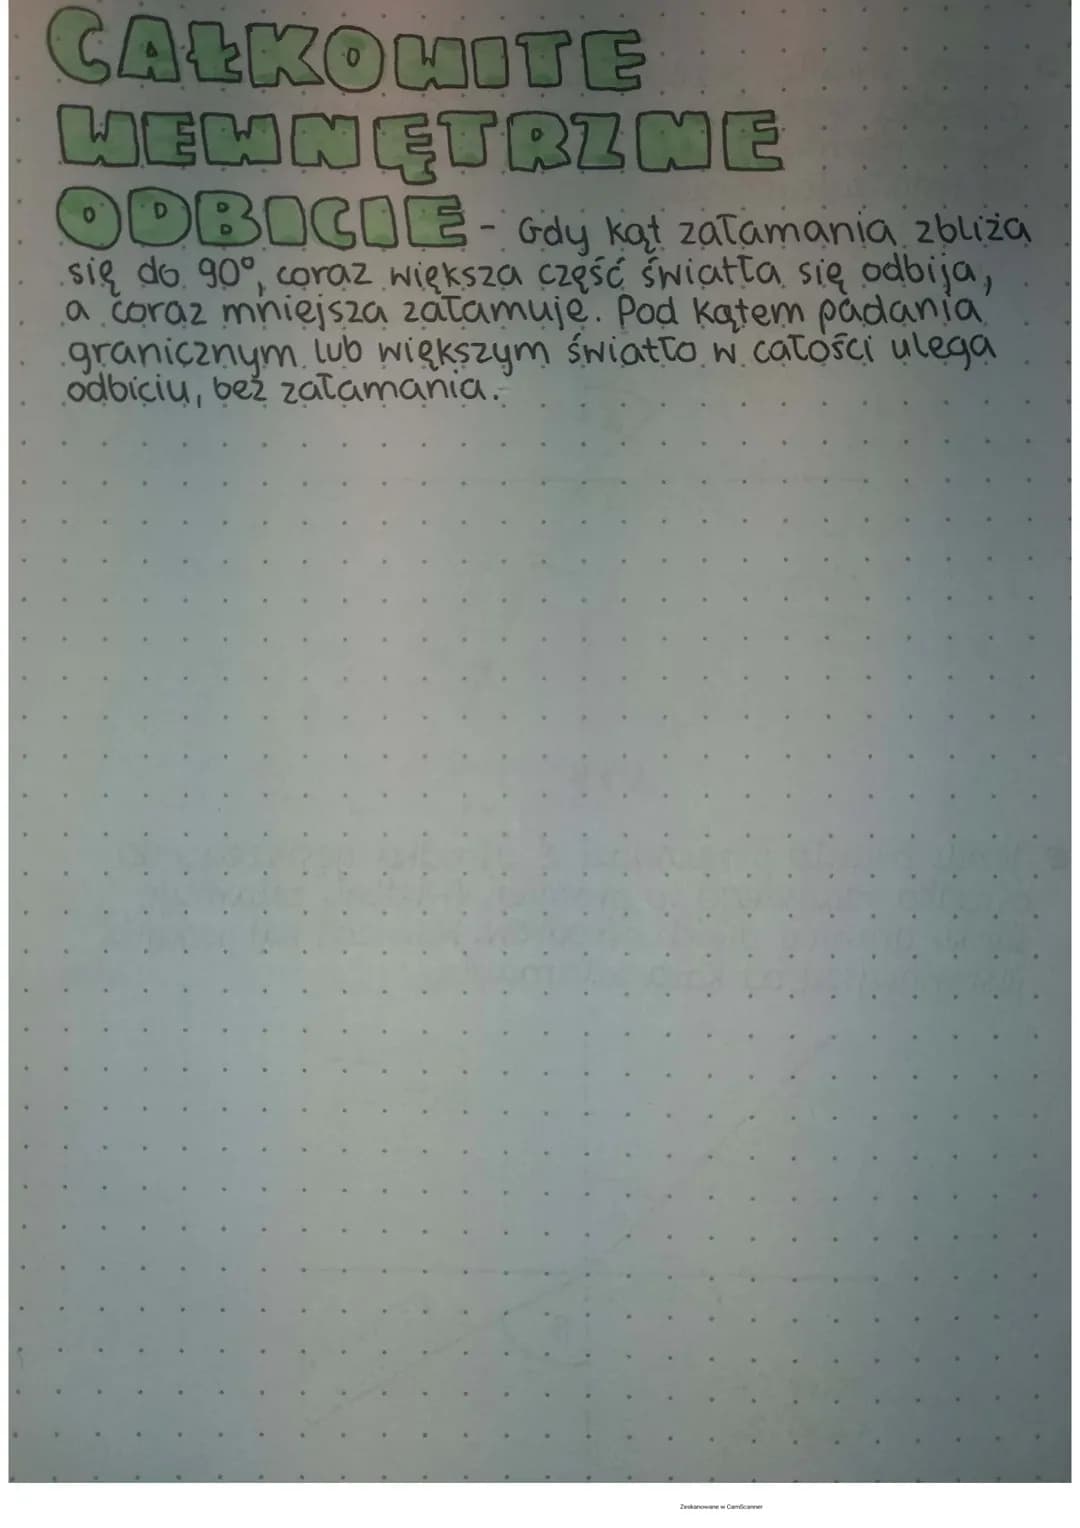 CAŁKOWITE
WEWNĘTRZNE
ODBICIE - Gdy kąt załamania zbliża
się do 90°, coraz większa część światła się odbija,
a coraz mniejsza załamuje. Pod kątem padania
granicznym lub większym światło w całości ulega
odbiciu, bez załamania.
Zeskanowane w CamScanner